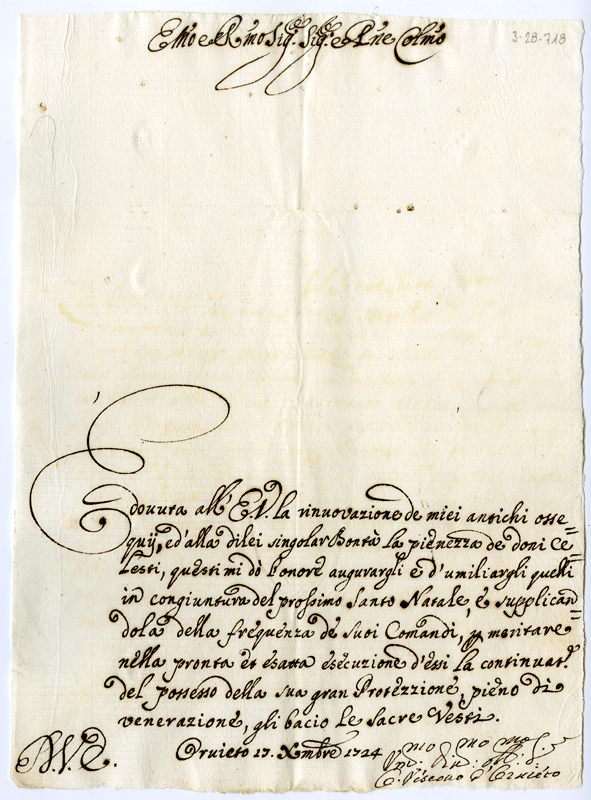 Emo e Rmo Sig.r Sig.r e Pne Colmo
3-28-718
È dovuta all' E.V. la rinuovazione de miei antichi osse=
quij, ed' alla di lei singolar Bontà la pienezza de doni Ce=
lesti, questi mi dò l'onore augurargli e d'umiliargli quelli
in congiuntura del prossimo Santo Natale, e supplican=
dola della frequenza de suoi Comandi, p meritare
nella pronta et esatta esecuzione d'essi la continuat.e
del possesso della sua gran Protezzione, pieno di
venerazione, gli bacio le Sacre Vesti.
Orvieto 17. Xmbre 1724
mo mo mo
C. Vescovo d' Orvieto